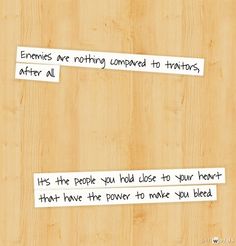 Enemies are nothing compared to traitors,
after all.
It's the people you hold close to your heart
that have the power to make you bleed.